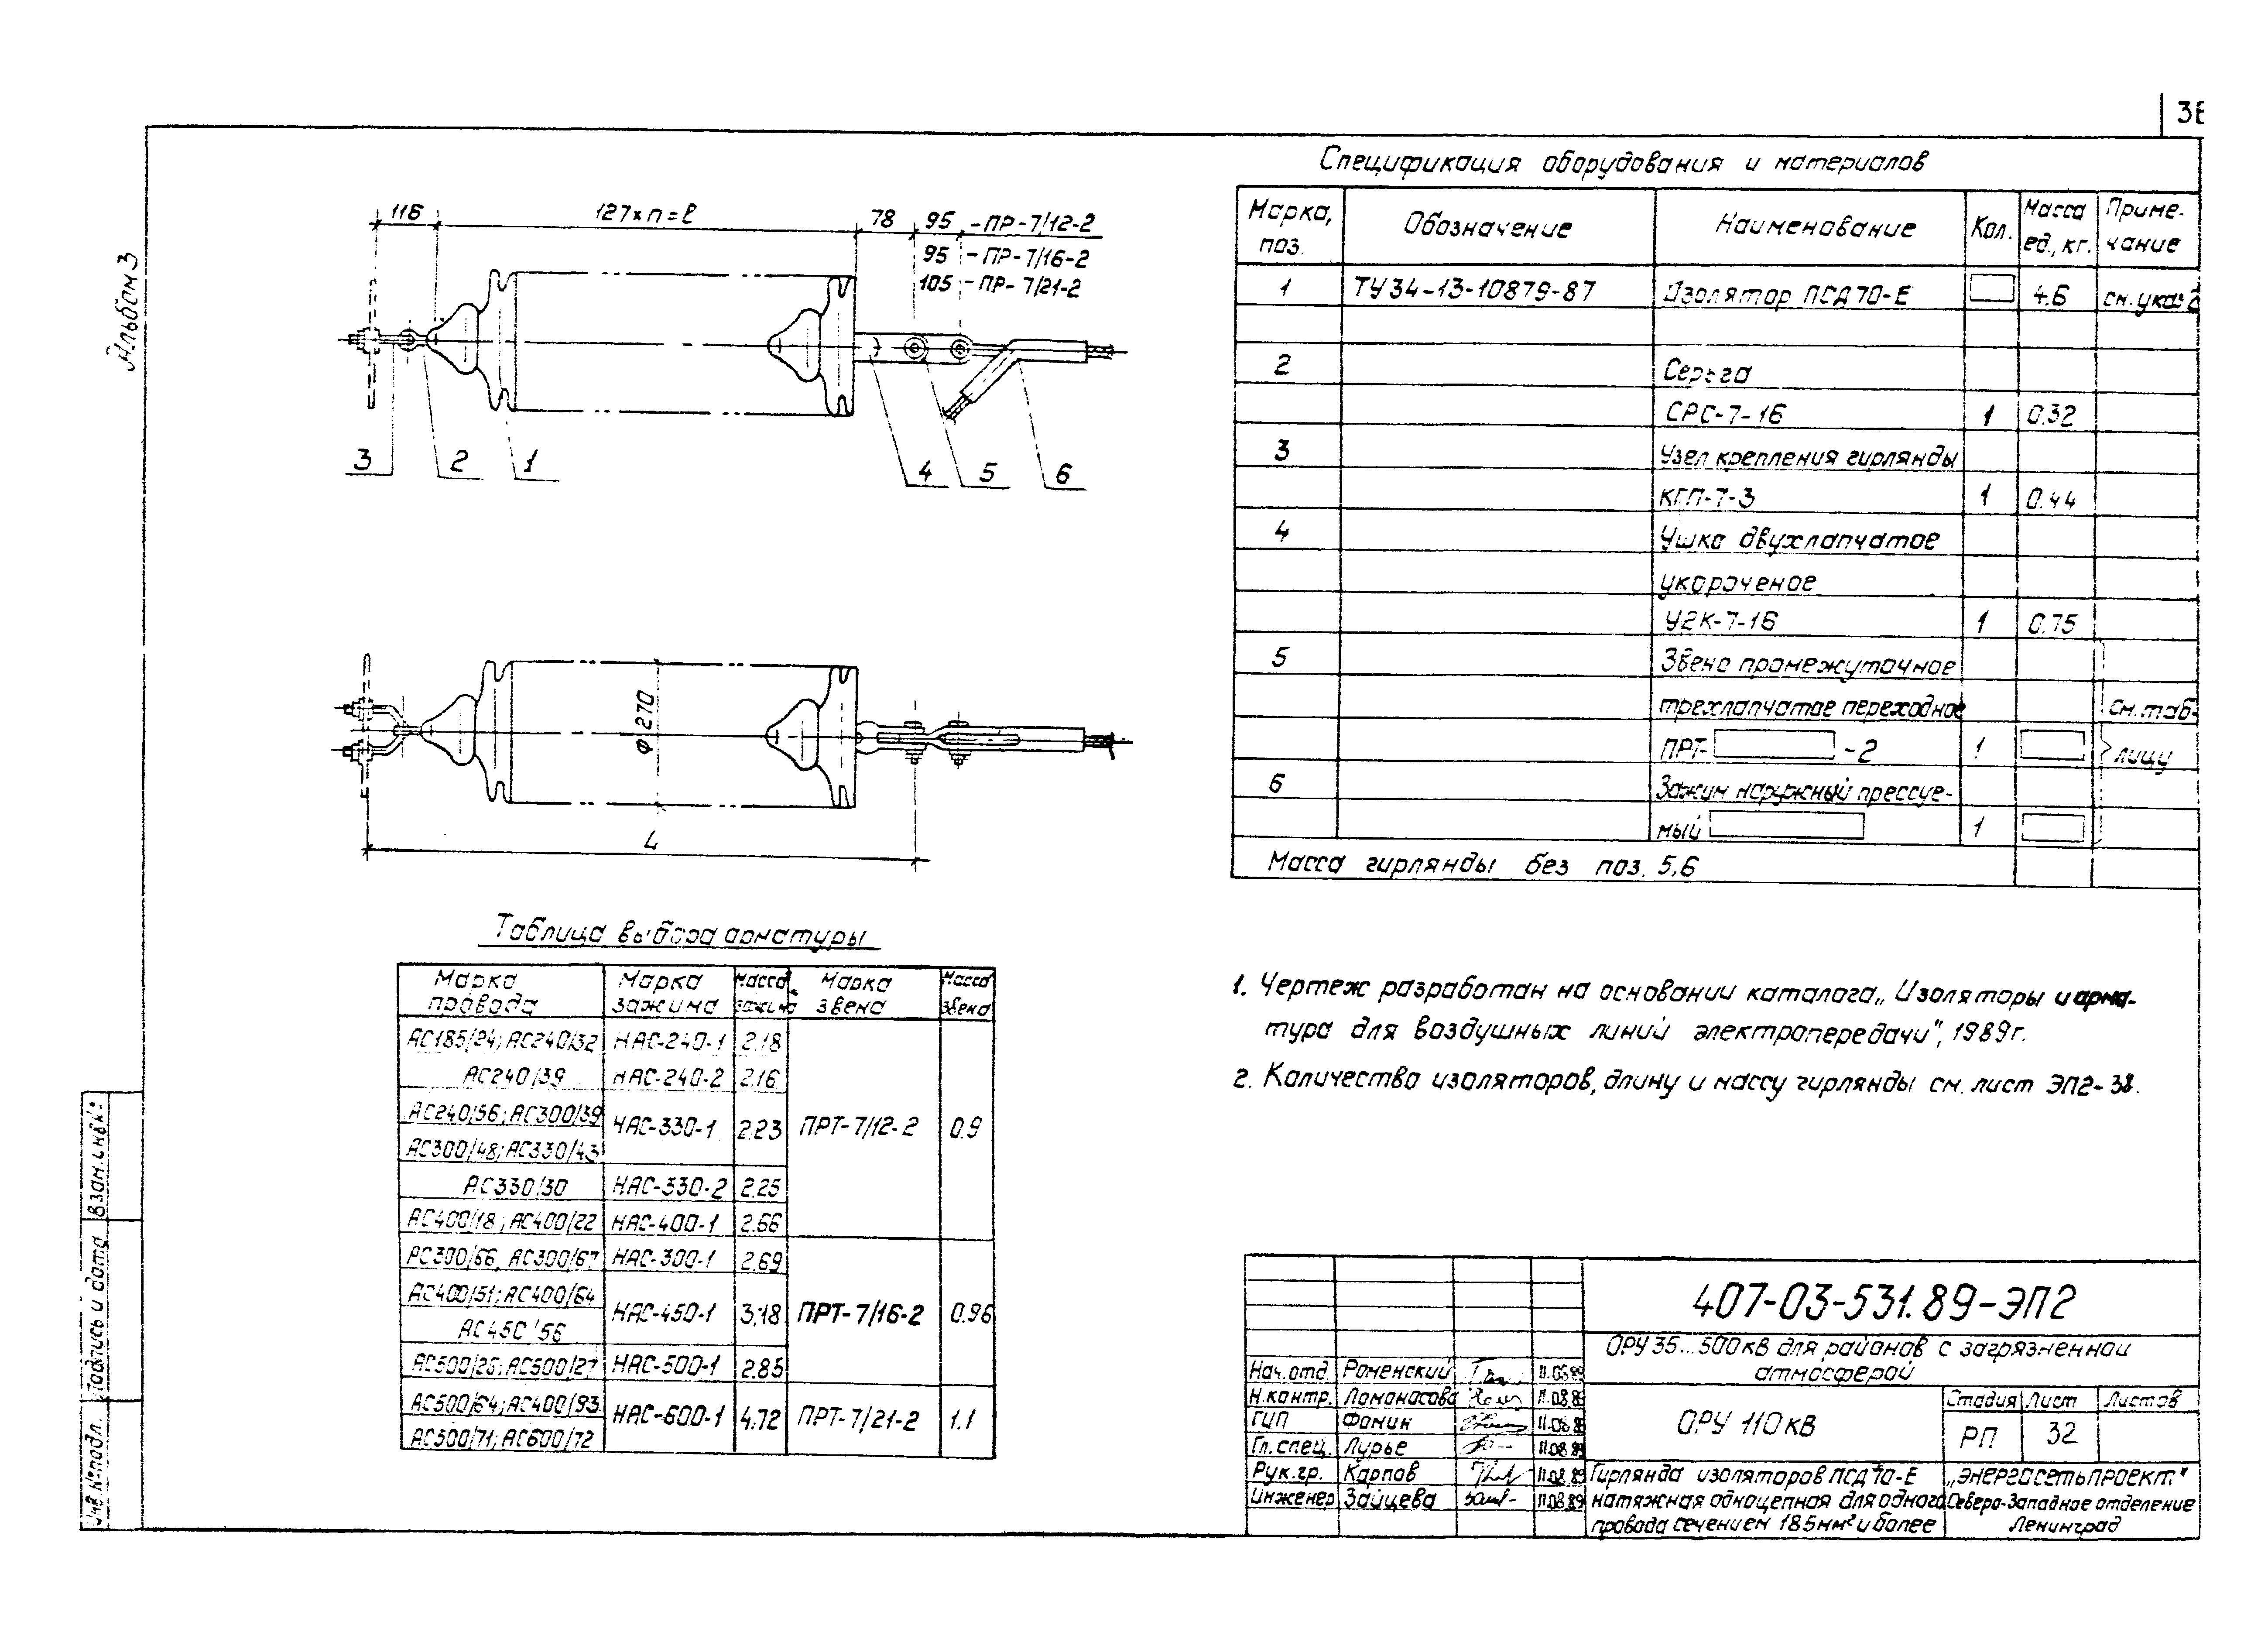 Альбом 3
116
127×п=ℓ
78
95 -ПР-7/12-2
95 -ПР-7/16-2
105 -ПР-7/21-2
3
2
1
4
5
6
Ф 270
L
Таблица выбора арматуры
Марка провода
Марка зажима
Масса зажима
Марка звена
Масса звена
АС185/24; АС240/32 НАС-240-1 2.18
АС240/39 НАС-240-2 2.16
АС240/56; АС300/39
АС300/48; АС330/43
НАС-330-1 2.23 ПРТ-7/12-2 0.9
АС330/30 НАС-330-2 2.25
АС400/18; АС400/22 НАС-400-1 2.66
АС300/66, АС300/67 НАС-300-1 2.69
АС400/51; АС400/64
АС450/56
НАС-450-1 3.18 ПРТ-7/16-2 0.96
АС500/26; АС500/27 НАС-500-1 2.85
АС500/64; АС400/93
АС500/71; АС600/72
НАС-600-1 4.72 ПРТ-7/21-2 1.1
Спецификация оборудования и материалов
Марка, поз.
Обозначение
Наименование
Кол.
Масса ед., кг.
Приме-
чание
1 ТУ34-13-10879-87 Изолятор ПСД70-Е 4.6 см. указ 2
2 Серьга
СРС-7-16 1 0.32
3 Узел крепления гирлянды
КГП-7-3 1 0.44
4 Ушко двухлапчатое
укороченое
У2К-7-16 1 0.75
5 Звено промежуточное
трехлапчатое переходное см. таб-
ПРТ- -2 1 лицу
6 Зажим наружный прессуе-
мый 1
Масса гирлянды без поз. 5,6
1. Чертеж разработан на основании каталога „Изоляторы и арма-
тура для воздушных линий электропередачи", 1989г.
2. Количество изоляторов, длину и массу гирлянды см. лист ЭП2-38.
407-03-531.89-ЭП2
ОРУ 35...500 кВ для районов с загрязненной
атмосферой
Нач.отд. Роменский 11.08.89
Н.контр. Ломоносова 11.08.89
ГИП Фомин 11.08.89
Гл.спец. Лурье 11.08.89
Рук.гр. Карпов 11.08.89
Инженер Зайцева 11.08.89
ОРУ 110 кВ
Стадия Лист Листов
РП 32
Гирлянда изоляторов ПСД70-Е
натяжная одноцепная для одного
провода сечением 185мм² и более
„Энергосетьпроект"
Северо-Западное отделение
Ленинград
Взам.инв.№
Подпись и дата
Инв.№подл.